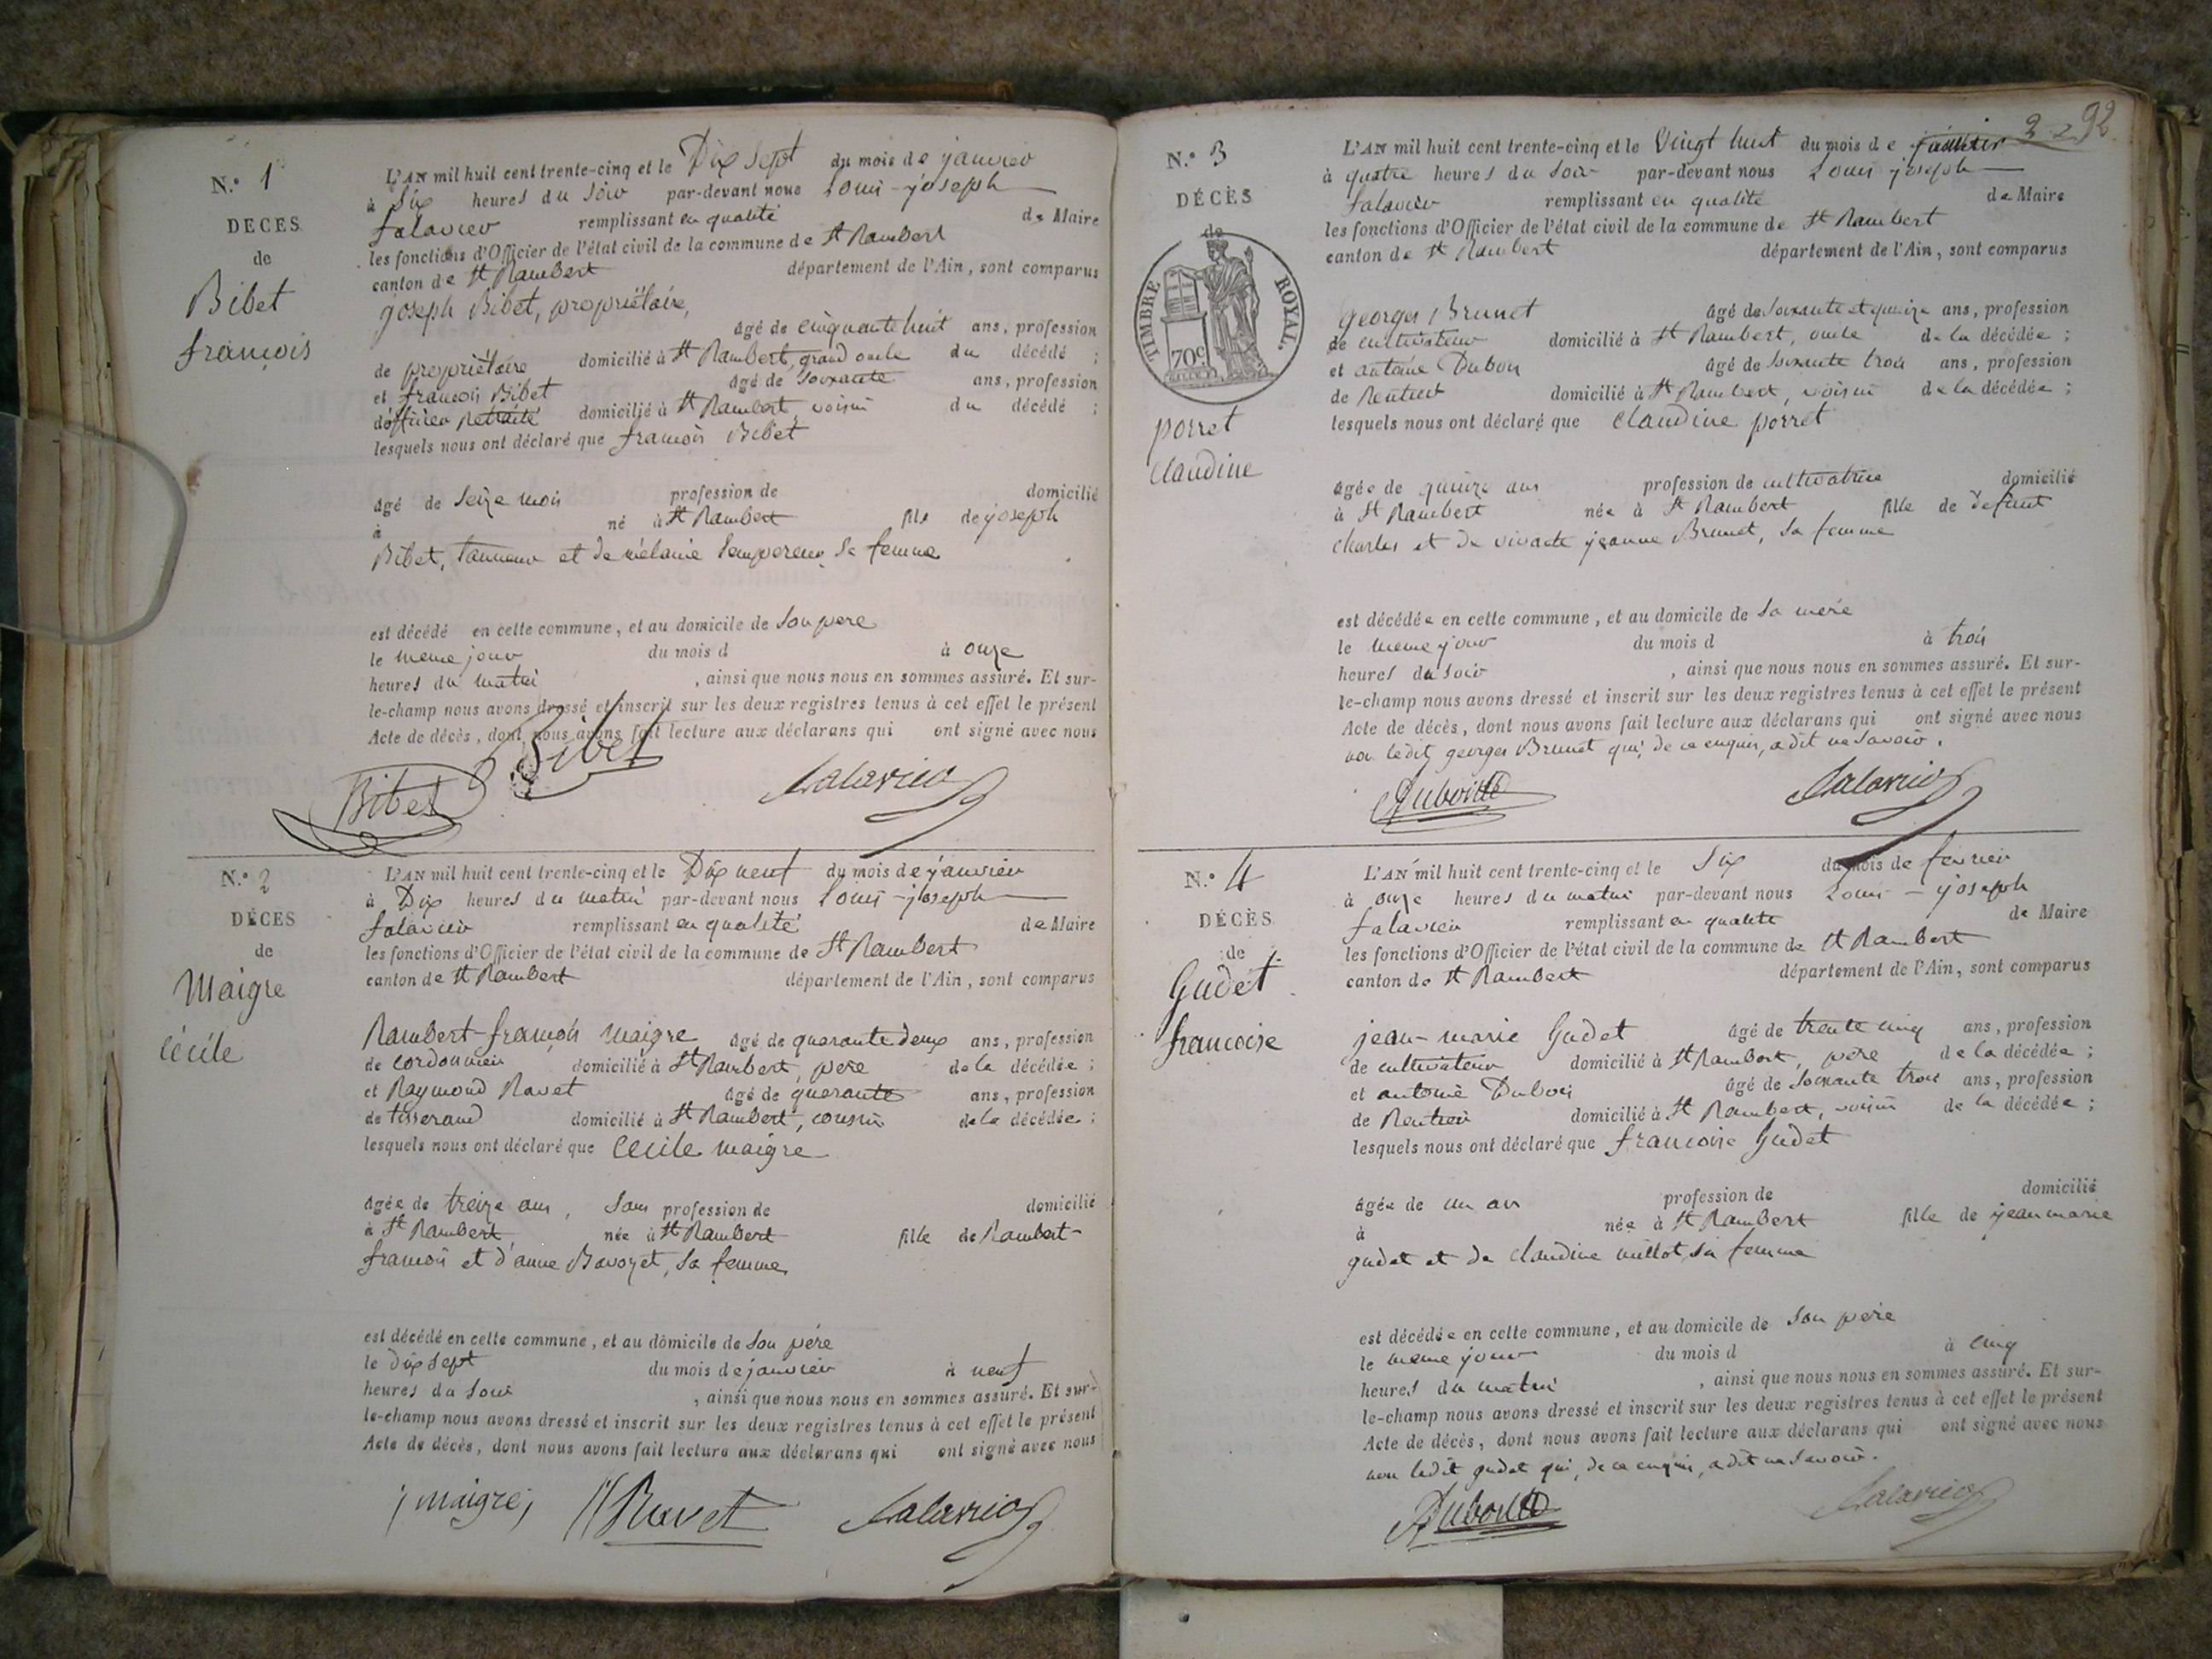 N.° 1
DECES
de
Bibet
françois
L'AN mil huit cent trente-cinq et le Dix Sept du mois de janvier
à Six heures du Soir par-devant nous Louis-joseph
falavier remplissant en qualité de Maire
les fonctions d'Officier de l'état civil de la commune de St Rambert
canton de St Rambert département de l'Ain, sont comparus
joseph Bibet, propriétaire,
âgé de cinquante huit ans, profession
de propriétaire domicilié à St Rambert, grand oncle du décédé ;
et françois Bibet âgé de Soixante ans, profession
d'officier retraité domicilié à St Rambert, voisin du décédé ;
lesquels nous ont déclaré que françois Bibet
âgé de Seize mois profession de domicilié
à né à St Rambert fils de joseph
Bibet, tanneur et de mélanie Sa femme
est décédé en cette commune, et au domicile de Son père
le même jour du mois d à onze
heures du matin , ainsi que nous nous en sommes assuré. Et sur-
le-champ nous avons dressé et inscrit sur les deux registres tenus à cet effet le présent
Acte de décès, dont nous avons fait lecture aux déclarans qui ont signé avec nous
Bibet Bibet falavier
N.° 2
DÉCES
de
Maigre
Cécile
L'AN mil huit cent trente-cinq et le Dix neuf du mois de janvier
à Dix heures du matin par-devant nous Louis-joseph
falavier remplissant en qualité de Maire
les fonctions d'Officier de l'état civil de la commune de St Rambert
canton de St Rambert département de l'Ain, sont comparus
Rambert-françois Maigre âgé de quarante deux ans, profession
de cordonnier domicilié à St Rambert, père de la décédée ;
et Raymond Ravet âgé de quarante ans, profession
de tisserand domicilié à St Rambert, cousin de la décédée ;
lesquels nous ont déclaré que Cécile Maigre
âgée de treize ans, Sans profession de domicilié
à St Rambert née à St Rambert fille de Rambert-
françois et d'anne Bavozet, Sa femme
est décédé en cette commune, et au domicile de Son père
le dix sept du mois de janvier à neuf
heures du Soir , ainsi que nous nous en sommes assuré. Et sur-
le-champ nous avons dressé et inscrit sur les deux registres tenus à cet effet le présent
Acte de décès, dont nous avons fait lecture aux déclarans qui ont signé avec nous
maigre Ravet falavier
92
N.° 3
DÉCÈS
de
TIMBRE ROYAL.
70c
porret
claudine
L'AN mil huit cent trente-cinq et le Vingt huit du mois de janvier
à quatre heures du Soir par-devant nous Louis joseph
falavier remplissant en qualité de Maire
les fonctions d'Officier de l'état civil de la commune de St Rambert
canton de St Rambert département de l'Ain, sont comparus
georges Brunet âgé de Soixante et quinze ans, profession
de cultivateur domicilié à St Rambert, oncle de la décédée ;
et antoine Dubois âgé de Soixante trois ans, profession
de Rentier domicilié à St Rambert, voisin de la décédée ;
lesquels nous ont déclaré que claudine porret
âgée de quinze ans profession de cultivatrice domicilié
à St Rambert née à St Rambert fille de défunt
charles et de vivante jeanne Brunet, Sa femme
est décédée en cette commune, et au domicile de Sa mère
le même jour du mois d à trois
heures du Soir , ainsi que nous nous en sommes assuré. Et sur-
le-champ nous avons dressé et inscrit sur les deux registres tenus à cet effet le présent
Acte de décès, dont nous avons fait lecture aux déclarans qui ont signé avec nous
non ledit georges Brunet qui, de ce enquis, a dit ne Savoir.
Dubois falavier
N.° 4
DÉCÈS
de
Gudet
françoise
L'AN mil huit cent trente-cinq et le Six du mois de février
à onze heures du matin par-devant nous Louis-joseph
falavier remplissant en qualité de Maire
les fonctions d'Officier de l'état civil de la commune de St Rambert
canton de St Rambert département de l'Ain, sont comparus
jean-marie Gudet âgé de trente cinq ans, profession
de cultivateur domicilié à St Rambert, père de la décédée ;
et antoine Dubois âgé de Soixante trois ans, profession
de Rentier domicilié à St Rambert, voisin de la décédée ;
lesquels nous ont déclaré que françoise Gudet
âgée de un an profession de domicilié
à née à St Rambert fille de jean marie
gudet et de claudine millot, Sa femme
est décédée en cette commune, et au domicile de Son père
le même jour du mois d à cinq
heures du matin , ainsi que nous nous en sommes assuré. Et sur-
le-champ nous avons dressé et inscrit sur les deux registres tenus à cet effet le présent
Acte de décès, dont nous avons fait lecture aux déclarans qui ont signé avec nous
non ledit gudet qui, de ce enquis, a dit ne Savoir.
Dubois falavier